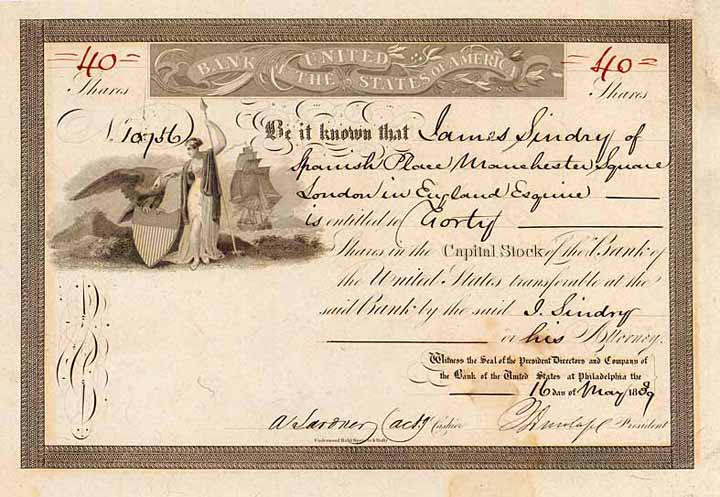 =40= =40=
BANK OF THE UNITED STATES OF AMERICA
Shares Shares
N. 10756
Be it known that James Lindry of
Spanish Place Manchester Square
London in England Esquire
is entitled to Forty
Shares in the Capital Stock of the Bank of
the United States transferable at the
said Bank by the said J. Lindry
or his Attorney.
Witness the Seal of the President Directors and Company of
the Bank of the United States at Philadelphia the
16 day of May 1839
A Lardner (actg) Cashier T Dunlap President
Underwood Bald Spencer & Hufty